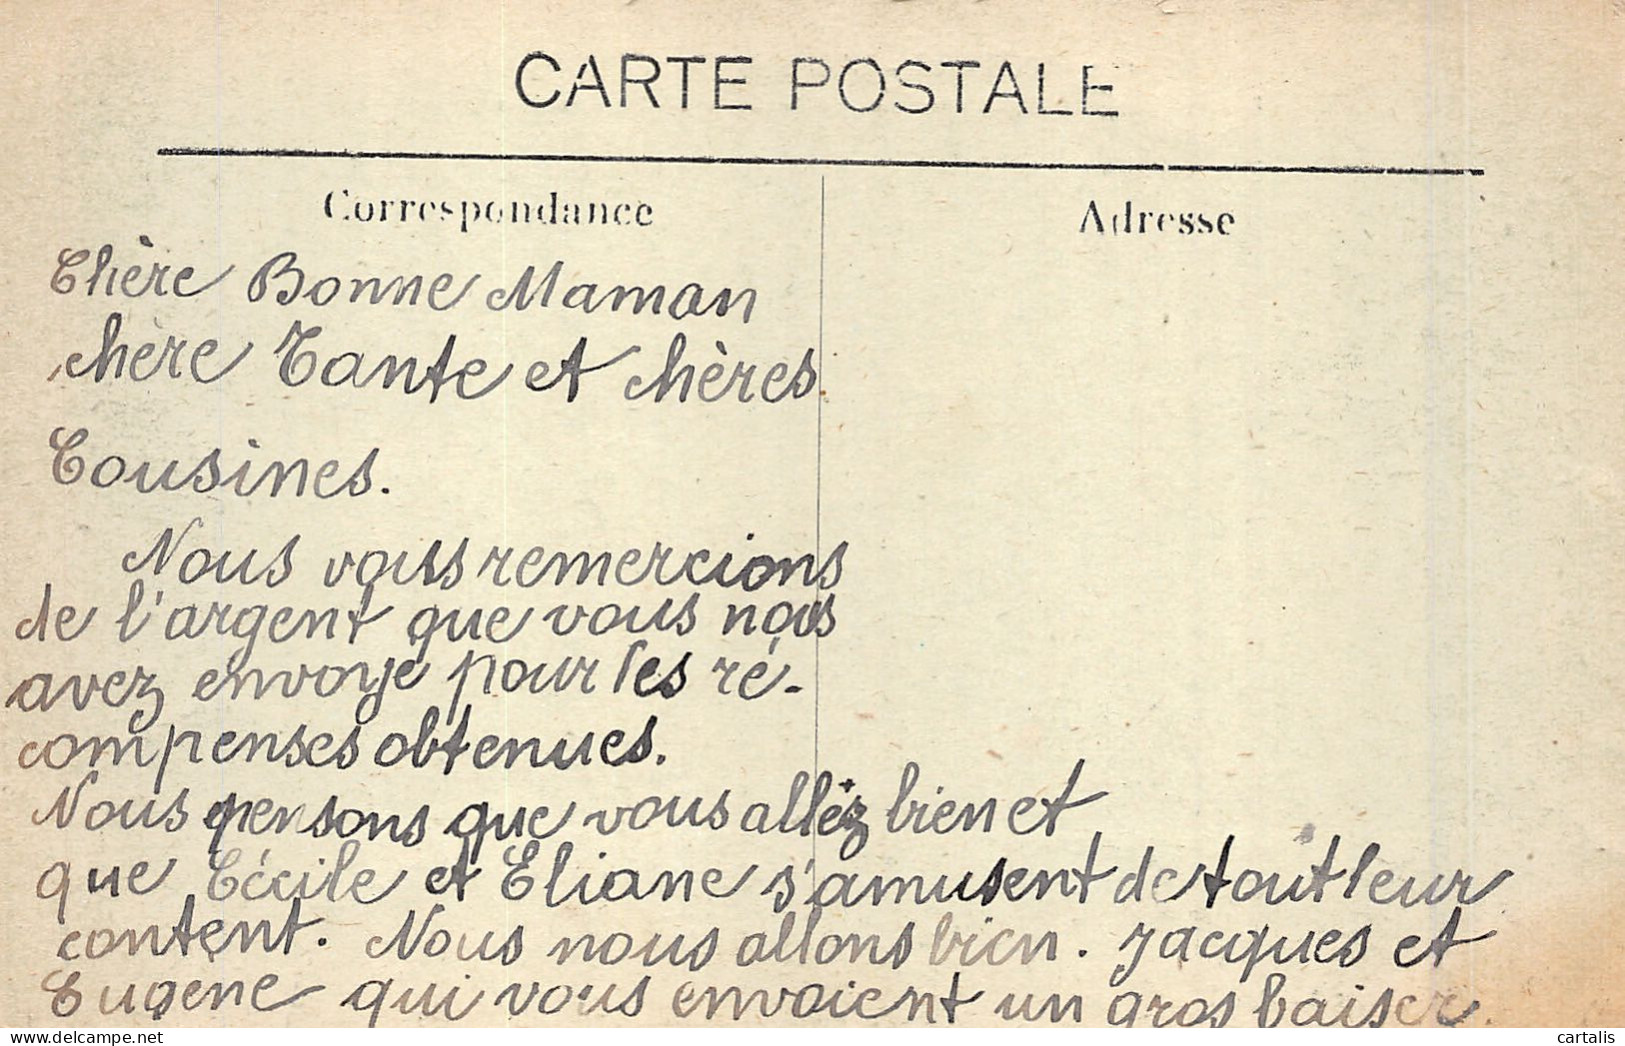 CARTE POSTALE
Correspondance
Adresse
Chère Bonne Maman
chère Tante et chères
Cousines.
Nous vous remercions
de l'argent que vous nous
avez envoyé pour les ré-
compenses obtenues.
Nous pensons que vous allez bien et
que Cécile et Eliane s'amusent de tout leur
content. Nous nous allons bien. Jacques et
Eugène qui vous envoient un gros baiser.
delcampe.net
cartalis